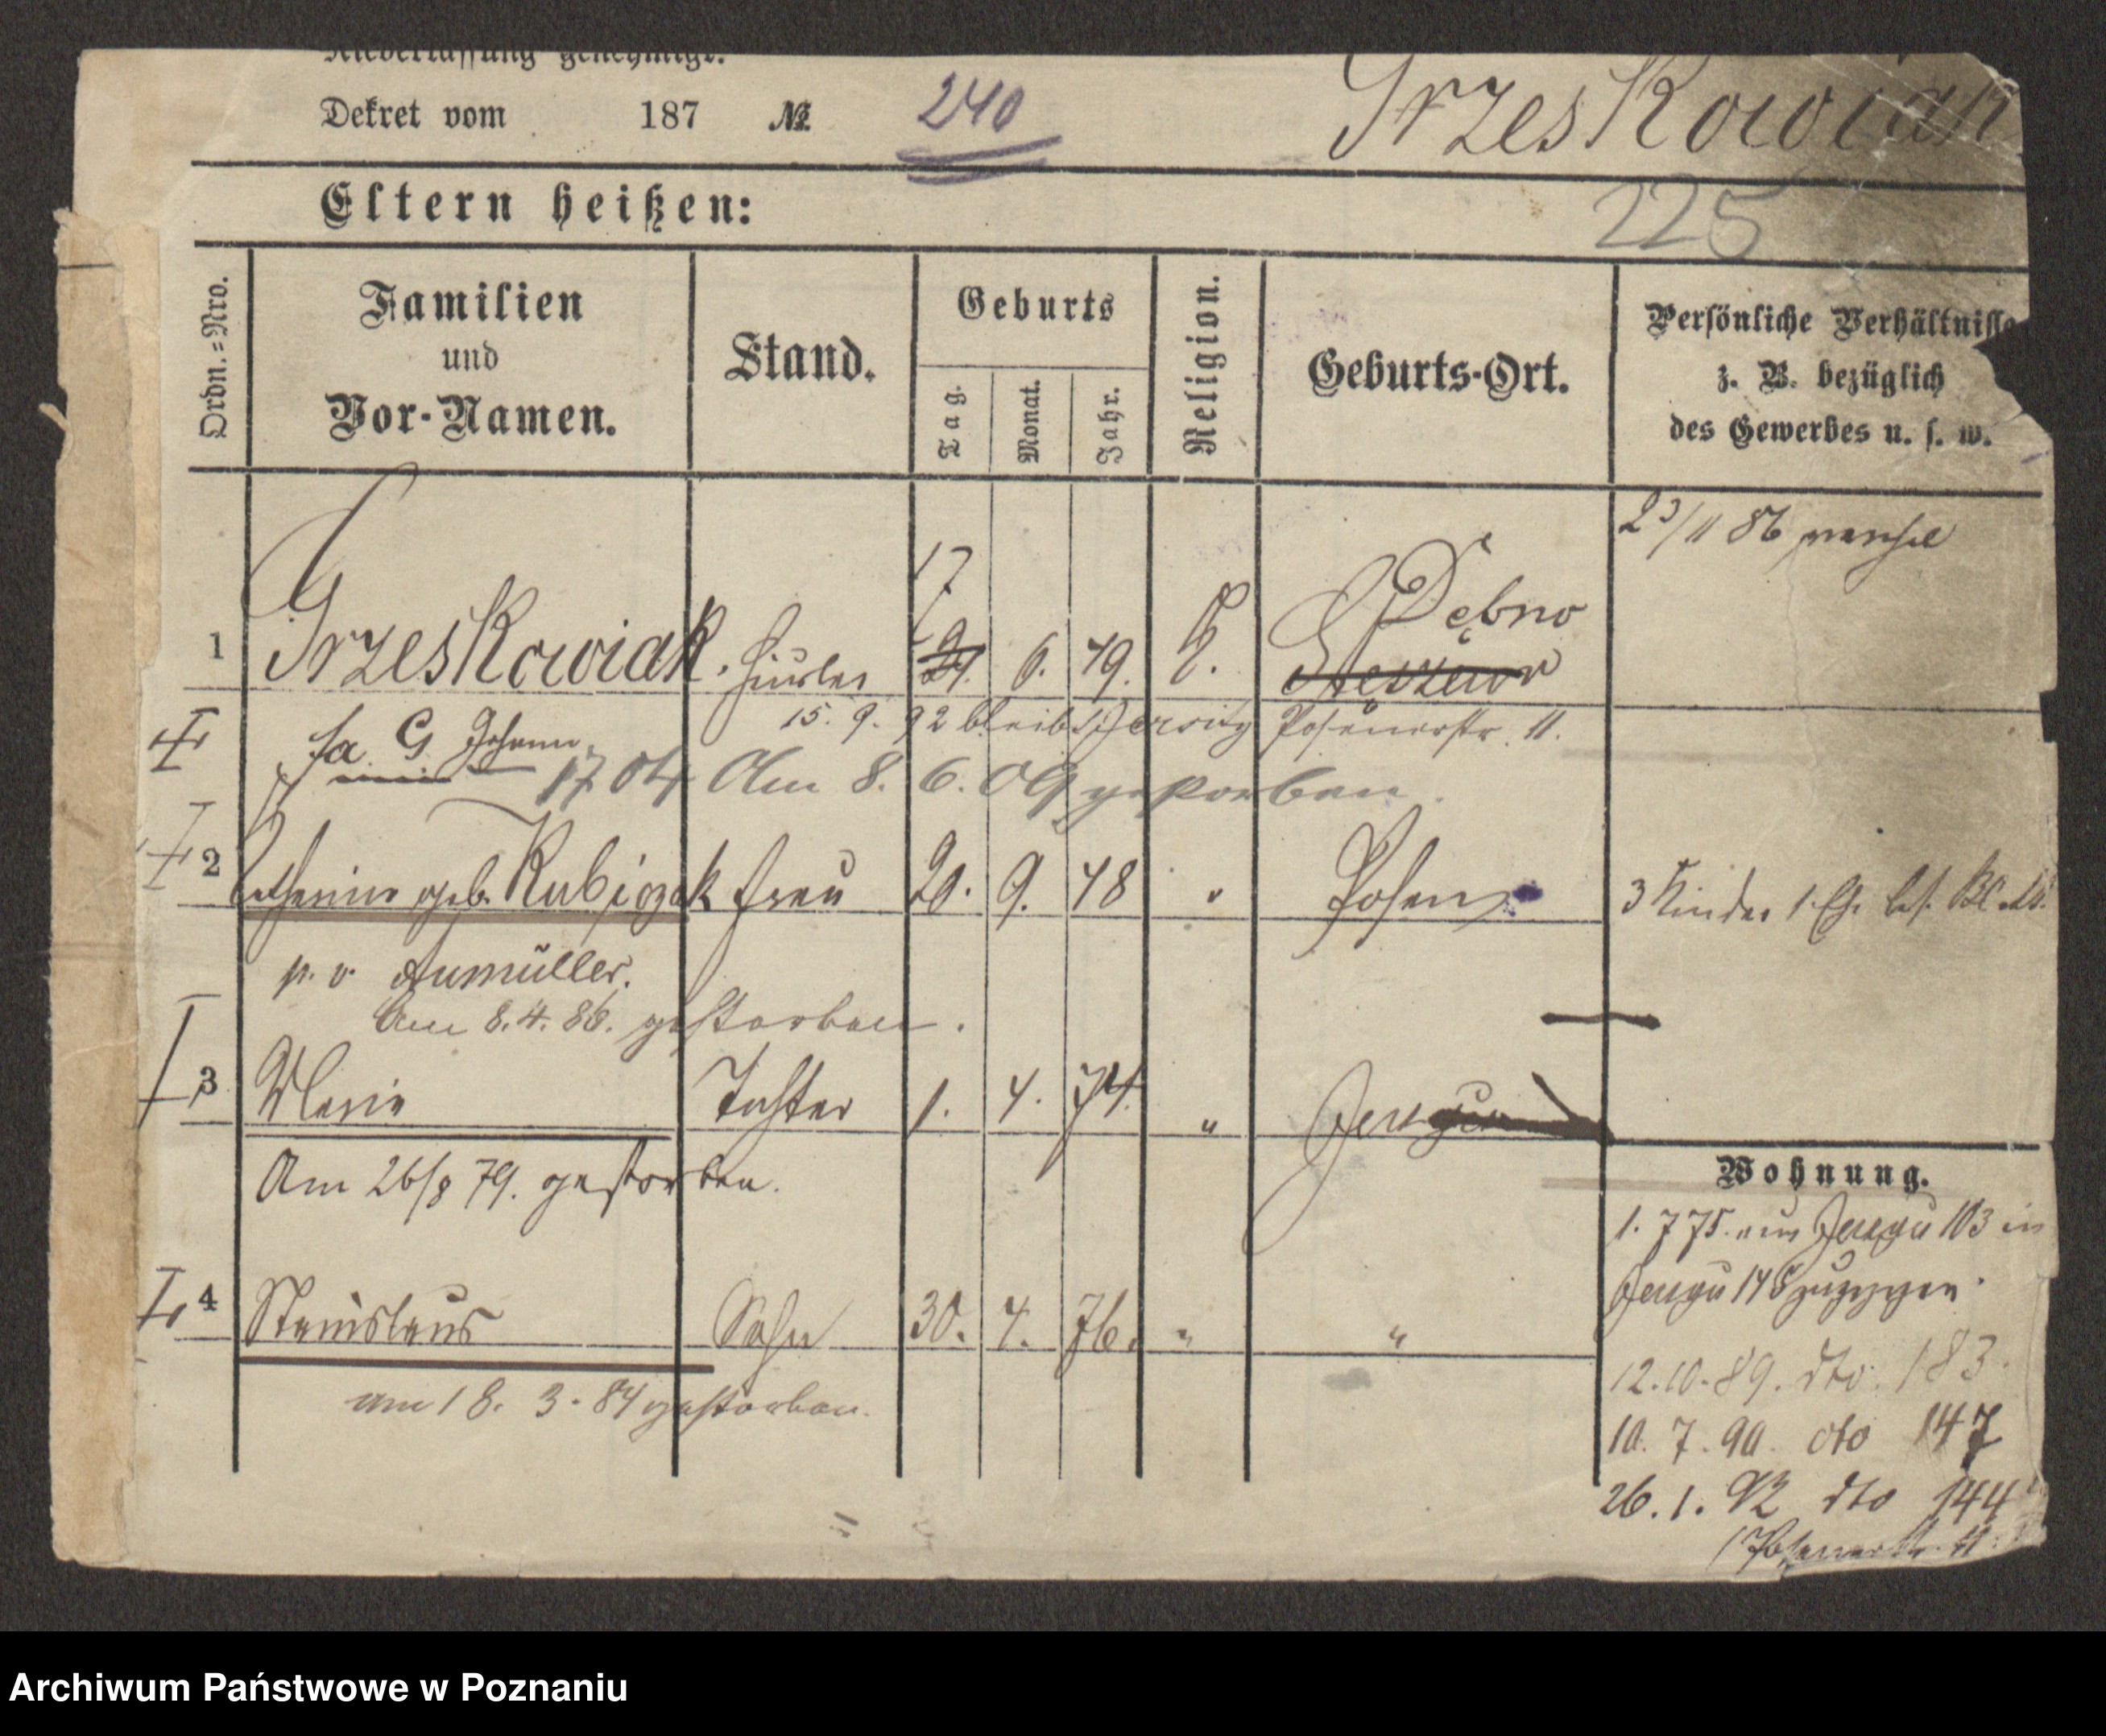 Niederlassung genehmigt.
Dekret vom 187 № 240
Grzeskowiak
Eltern heißen:
225
Ordn.-Nro.
Familien
und
Vor-Namen.
Stand.
Geburts
Tag.
Monat.
Jahr.
Religion.
Geburts-Ort.
Persönliche Verhältnisse
z. B. bezüglich
des Gewerbes u. s. w.
23/11 86
17
Dębno
1 Grzeskowiak. 6. 49. Stęszewo
G Johann
15. 9. 92 bleibt Jersitz Posenerstr. 11.
17 04 Am 8. 6. 04 gestorben.
2 Catharina geb. Kubiczak Frau 20. 9. 48 " Posen
3 Kinder 1. Eh.
p. v. Aumüller.
Am 8.4.86. gestorben.
3 Marie Tochter 1. 4. 74. "
Am 26/8 79. gestorben.
Wohnung.
1. 7 75. 103 in
4 Stanislaus Sohn 30. 4. 76. " "
am 18. 3. 84 gestorben.
12.10.89. dto. 183.
10. 7. 90. dto 147
26. 1. 92 dto 144
Posenerstr. 11.
Archiwum Państwowe w Poznaniu